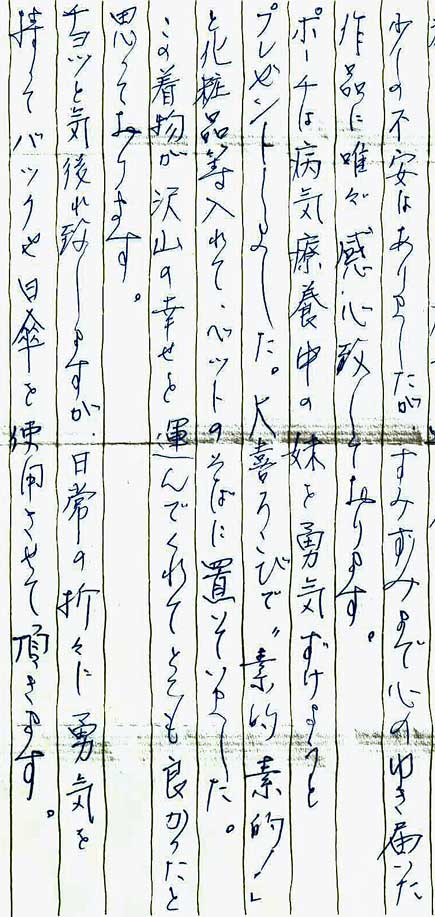 少しの不安はありましたが、すみずみまで心のゆき届いた
作品に唯々感心致しております。
ポーチは病気療養中の妹を勇気ずけようと
プレゼントしました。大喜ろこびで“素的素的!」
と化粧品等入れて、ベットのそばに置いていました。
この着物が沢山の幸せを運んでくれてとても良かったと
思っております。
チョッと気後れ致しますが、日常の折々に勇気を
持ってバックや日傘を使用させて頂きます。